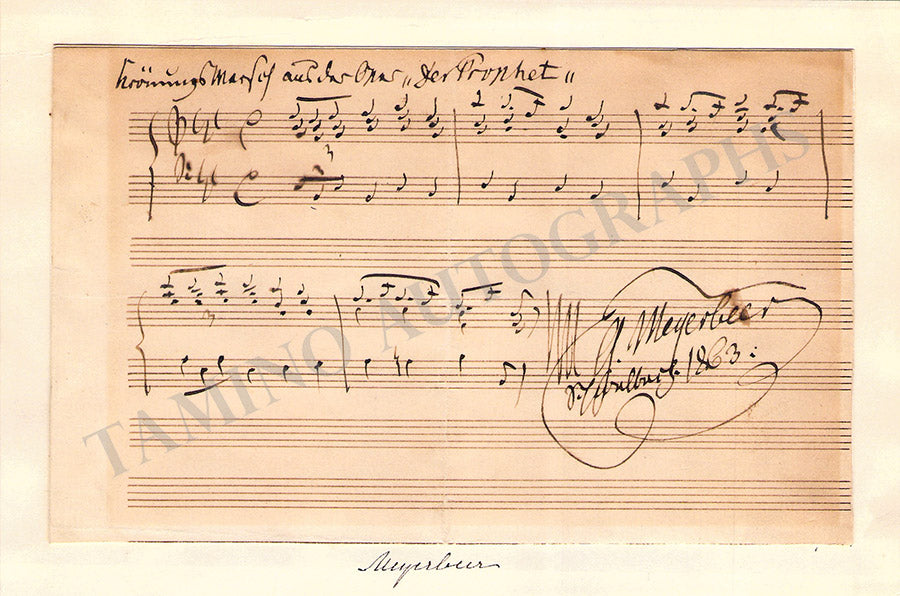 Krönungs Marsch aus der Oper „Der Prophet"
3
3
G. Meyerbeer
Schwalbach. 1863:
Meyerbeer
TAMINO AUTOGRAPHS